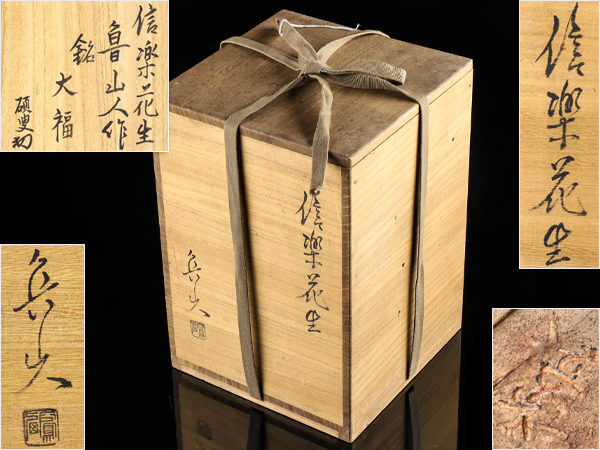 信楽花生
魯山人作
銘 大福
信楽花生
信楽花生
魯山人
魯山人